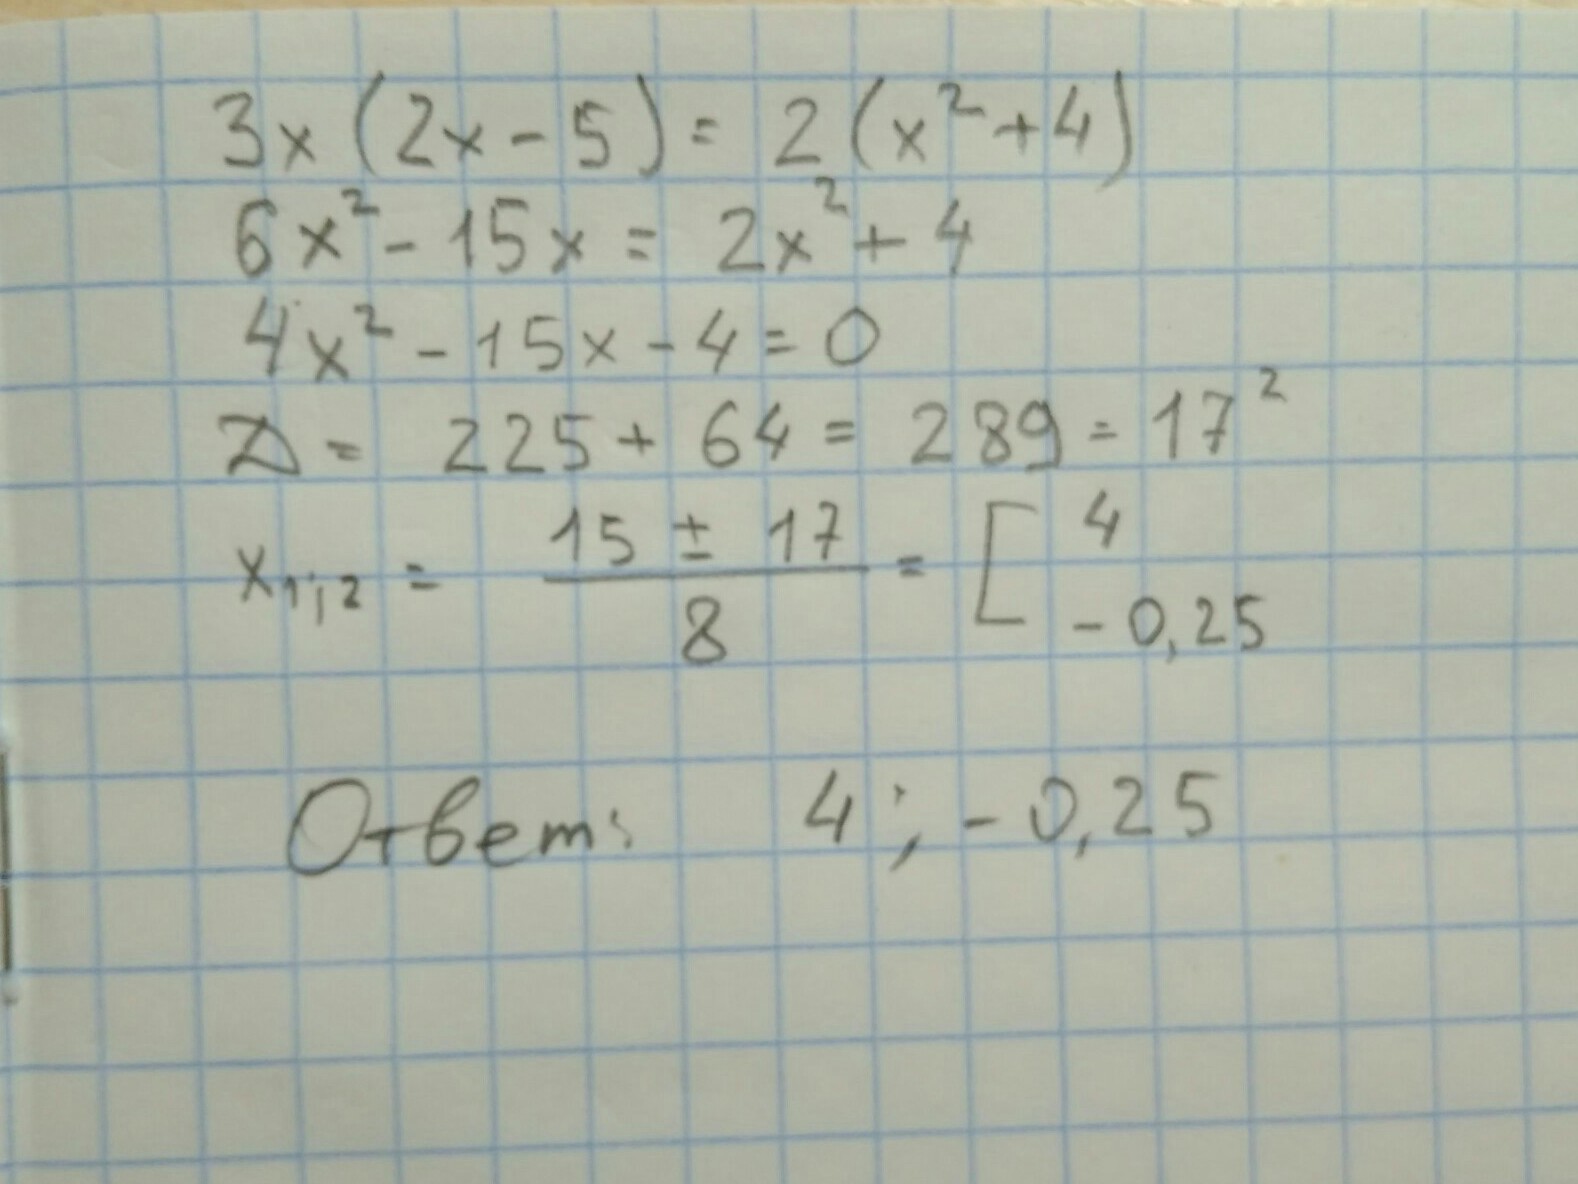 3x (2x - 5) = 2 (x² + 4)
6x² - 15x = 2x² + 4
4x² - 15x - 4 = 0
D = 225 + 64 = 289 = 17²
x₁;₂ = (15 ± 17)/8 = [ 4
- 0,25
Ответ: 4 ; - 0,25